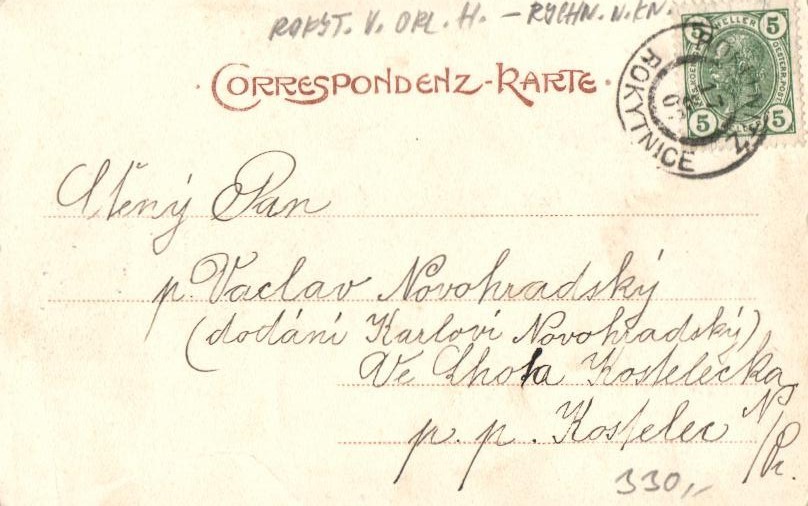 ROKYT. V. ORL. H. – RYCHN. N. KN.
CORRESPONDENZ-KARTE.
5 HELLER 5
5 5
ROKYTNICE
Ctěný Pan
p. Vaclav Novohradský
(dodání Karlovi Novohradský)
Ve Lhota Kostelecka
p. p. Kostelec N/
330,-